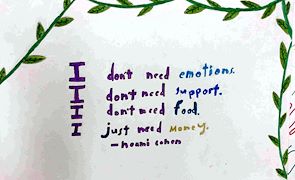 I don't need emotions.
I don't need support.
I don't need food.
I just need money.
- noami cohen